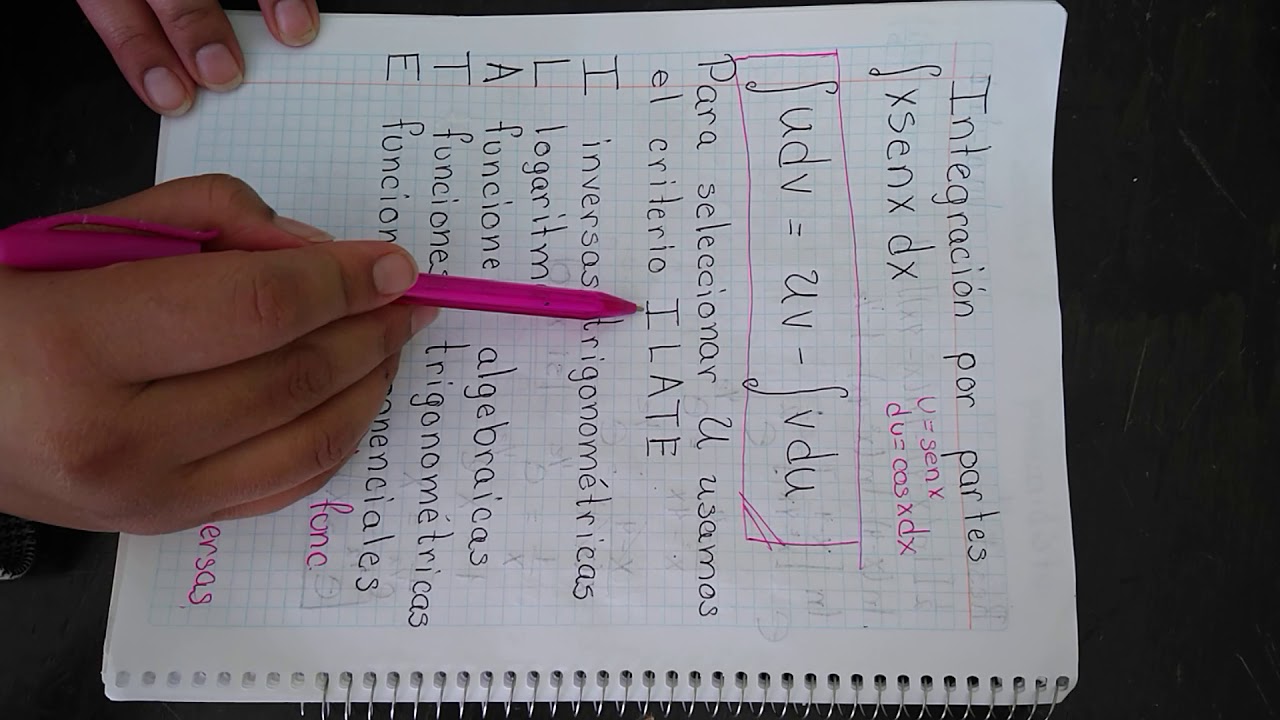 Integración por partes
∫xsenx dx
u=senx
du=cosxdx
∫udv = uv - ∫vdu
Para seleccionar u usamos
el criterio ILATE
I inversas trigonométricas
L
A funcione algebraicas
T funciones trigonométricas
E
func